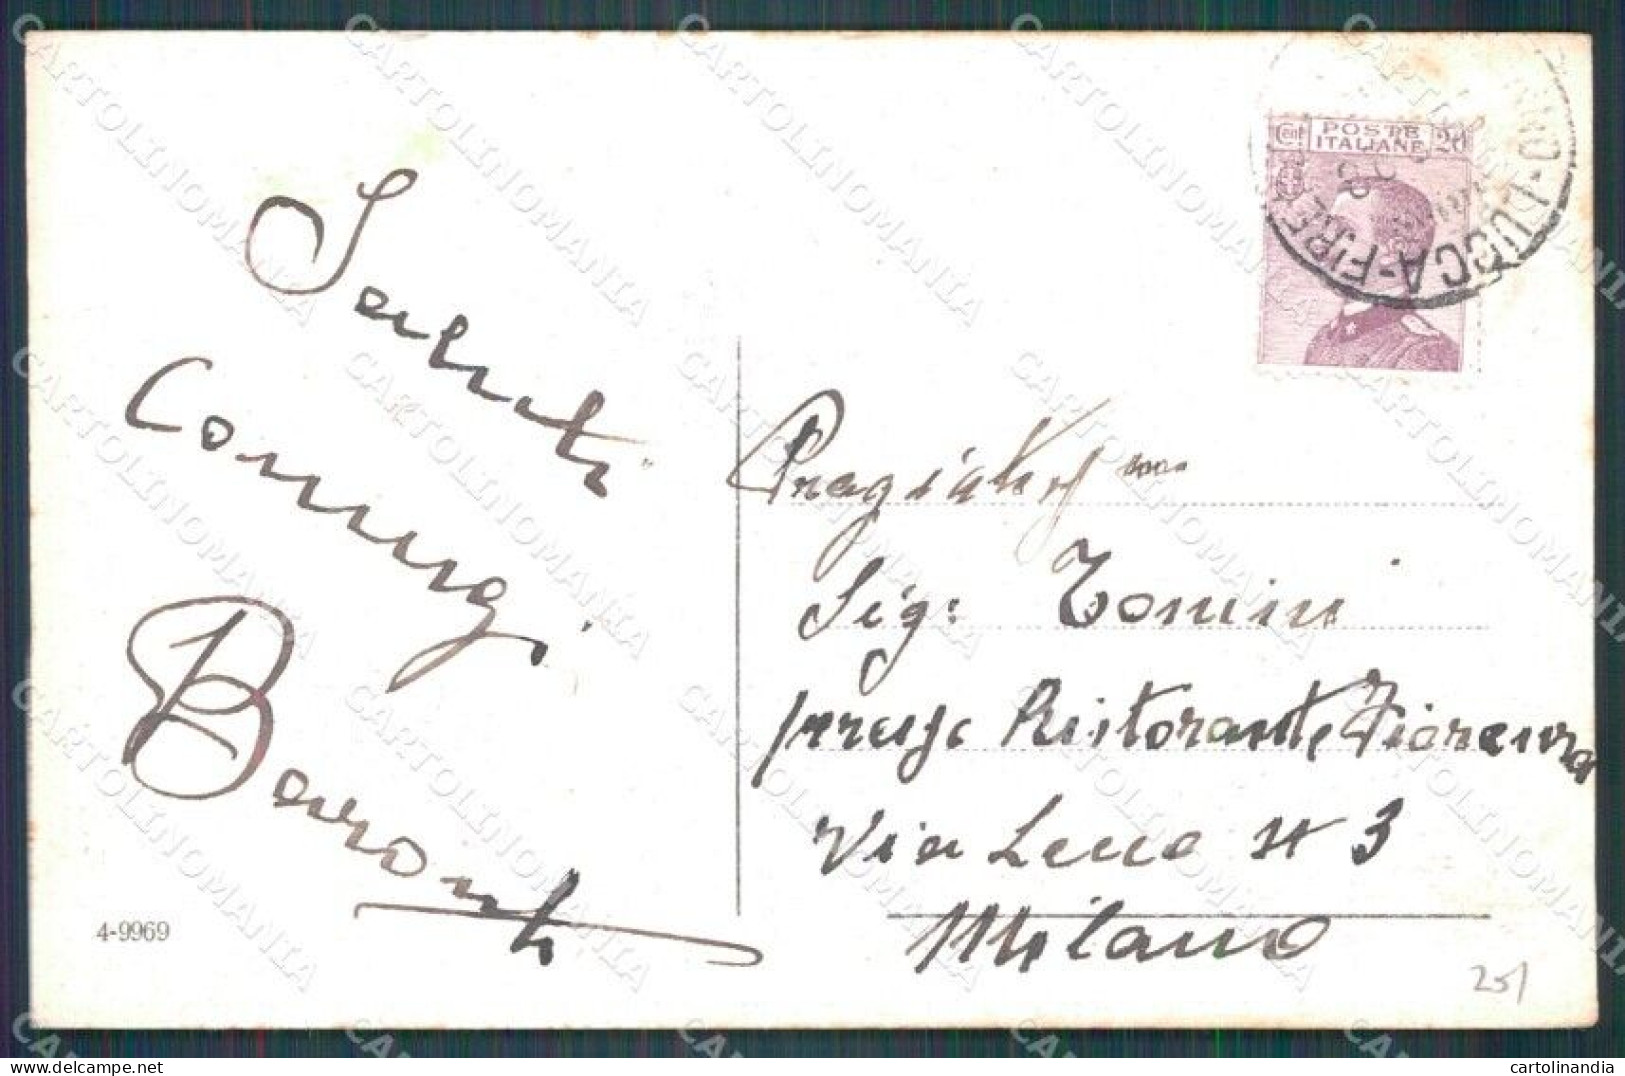 Saluti
Coniugi
Baronti
4-9969
Cent POSTE ITALIANE 20
LUCCA-FIRE
Sig: Tonini
presso Ristorante Fiorenza
Via Lecco N 3
Milano
251
CARTOLINOMANIA
cartolinandia